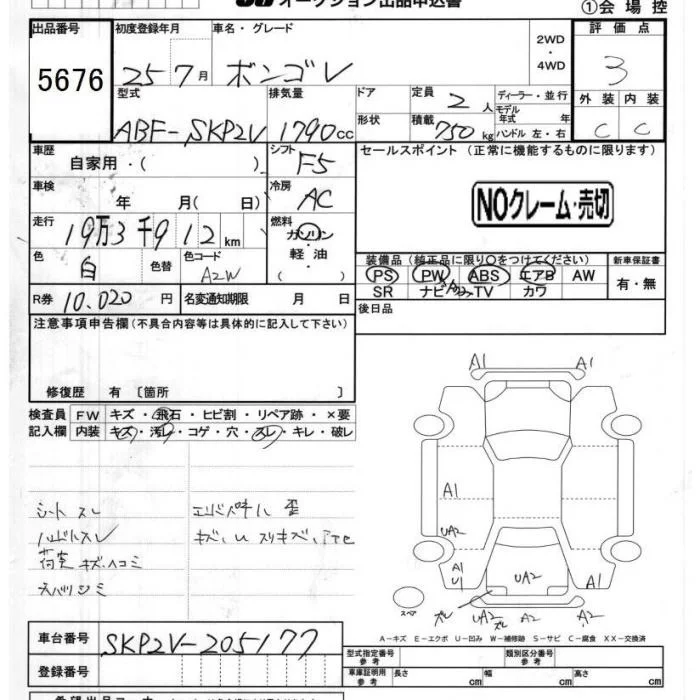 オークション出品申込書
①会場控
出品番号 初度登録年月 車名・グレード 2WD・4WD 評価点
5676 25 7月 ボンゴV 3
型式 排気量 ドア 定員 2人 ディーラー・並行 外装 内装
ABF-SKP2V 1790cc 形状 積載 750kg モデル年式 年 ハンドル 左・右 C C
車歴 自家用・( ) シフト F5 セールスポイント (正常に機能するものに限ります)
車検 年 月(日) 冷房 AC NOクレーム・売切
走行 19万3千912km 燃料 ガソリン・軽油・( )
色 白 色替 色コード A2W 装備品(純正品に限り○をつけてください) 新車保証書
PS PW ABS エアB AW 有・無
SR ナビ・TV カワ
R券 10.020円 名変通知期限 月 日 後日品
注意事項申告欄(不具合内容等は具体的に記入して下さい)
修復歴 有 〔箇所 〕
検査員 FW キズ・飛石・ヒビ割・リペア跡・×要
記入欄 内装 キズ・汚レ・コゲ・穴・スレ・キレ・破レ
A1 A1
A1
UA2
シート スレ
ハンドルスレ キズ、U スリキズ、
荷室 キズ、ヘコミ
A1 U1 UA2 A1
スペア ズレ UA2 ズレ A2 A2
A-キズ E-エクボ U-凹み W-補修跡 S-サビ C-腐食 XX-交換済
車台番号 SKP2V-205177
型式指定番号 参考 類別区分番号 参考
登録番号 車庫証明用 参考 長さ cm 幅 cm 高さ cm